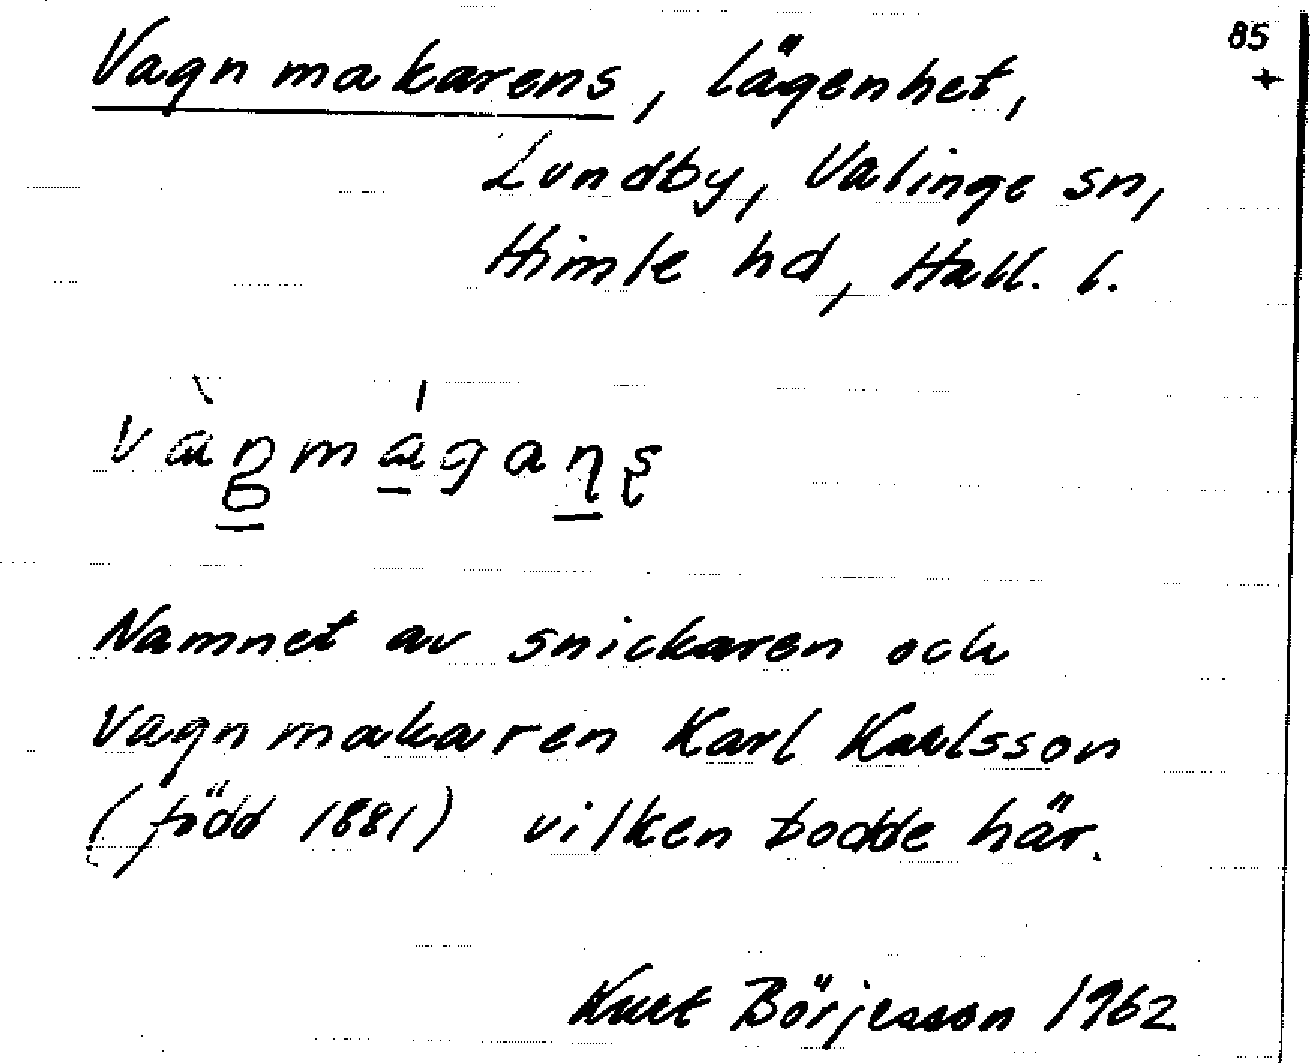 85
+
Vagnmakarens, lägenhet,
Lundby, Valinge sn,
Himle hd, Hall. l.
Namnet av snickaren och
vagnmakaren Karl Karlsson
(född 1881) vilken bodde här.
Kurt Börjesson 1962